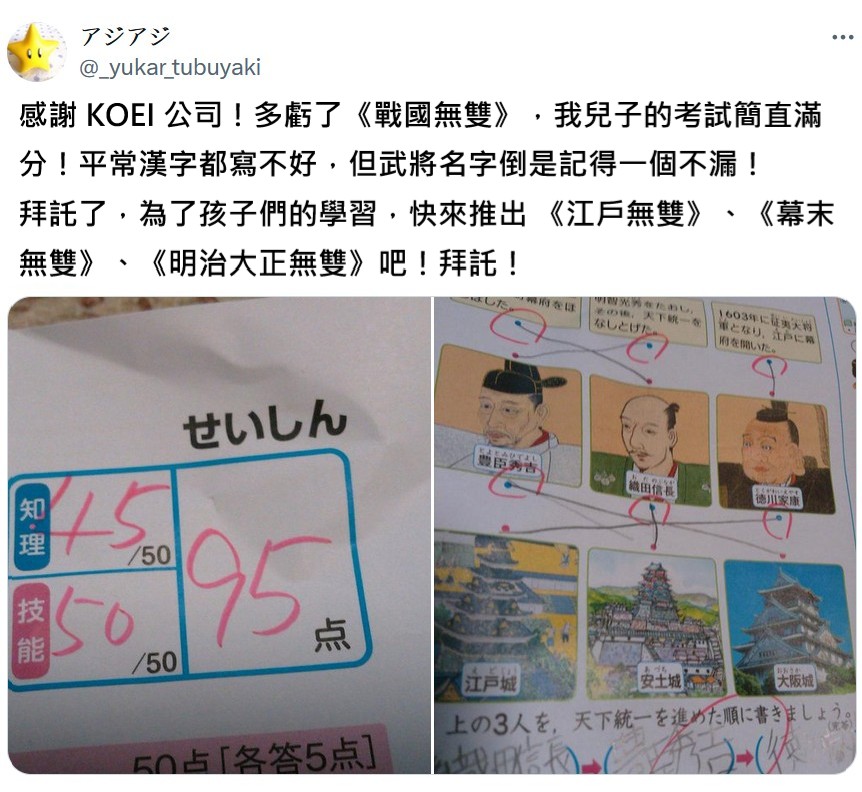 アジアジ
@_yukar_tubuyaki
感謝 KOEI 公司！多虧了《戰國無雙》，我兒子的考試簡直滿
分！平常漢字都寫不好，但武將名字倒是記得一個不漏！
拜託了，為了孩子們的學習，快來推出 《江戶無雙》、《幕末
無雙》、《明治大正無雙》吧！拜託！
せいしん
知・理
45
/50
技能
50
/50
95
点
50点［各答5点］
幕府をほ
した。
明智光秀をたおし、
その後、天下統一を
なしとげた。
1603年に征夷大将
軍となり、江戸に幕
府を開いた。
とよとみひでよし
豊臣秀吉
おだのぶなが
織田信長
とくがわいえやす
徳川家康
えどじょう
江戸城
あづち
安土城
おおさか
大阪城
上の3人を、天下統一を進めた順に書きましょう。
（完答）
織田信長
秀吉